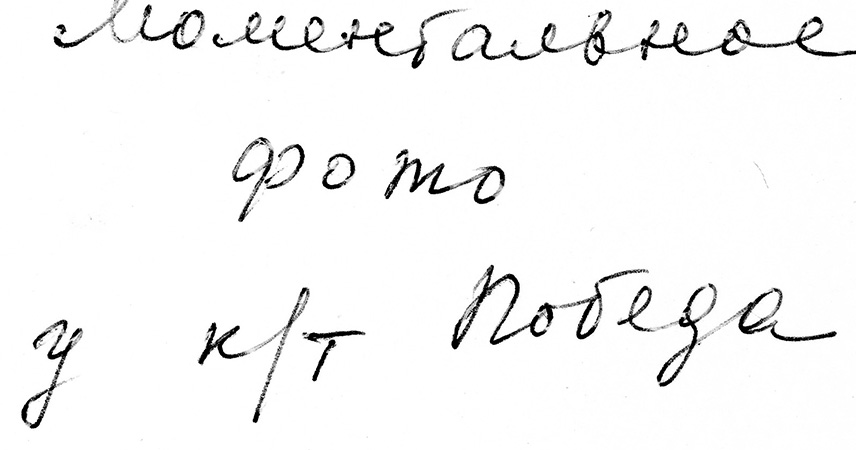 Моментальное
фото
у к/т Победа